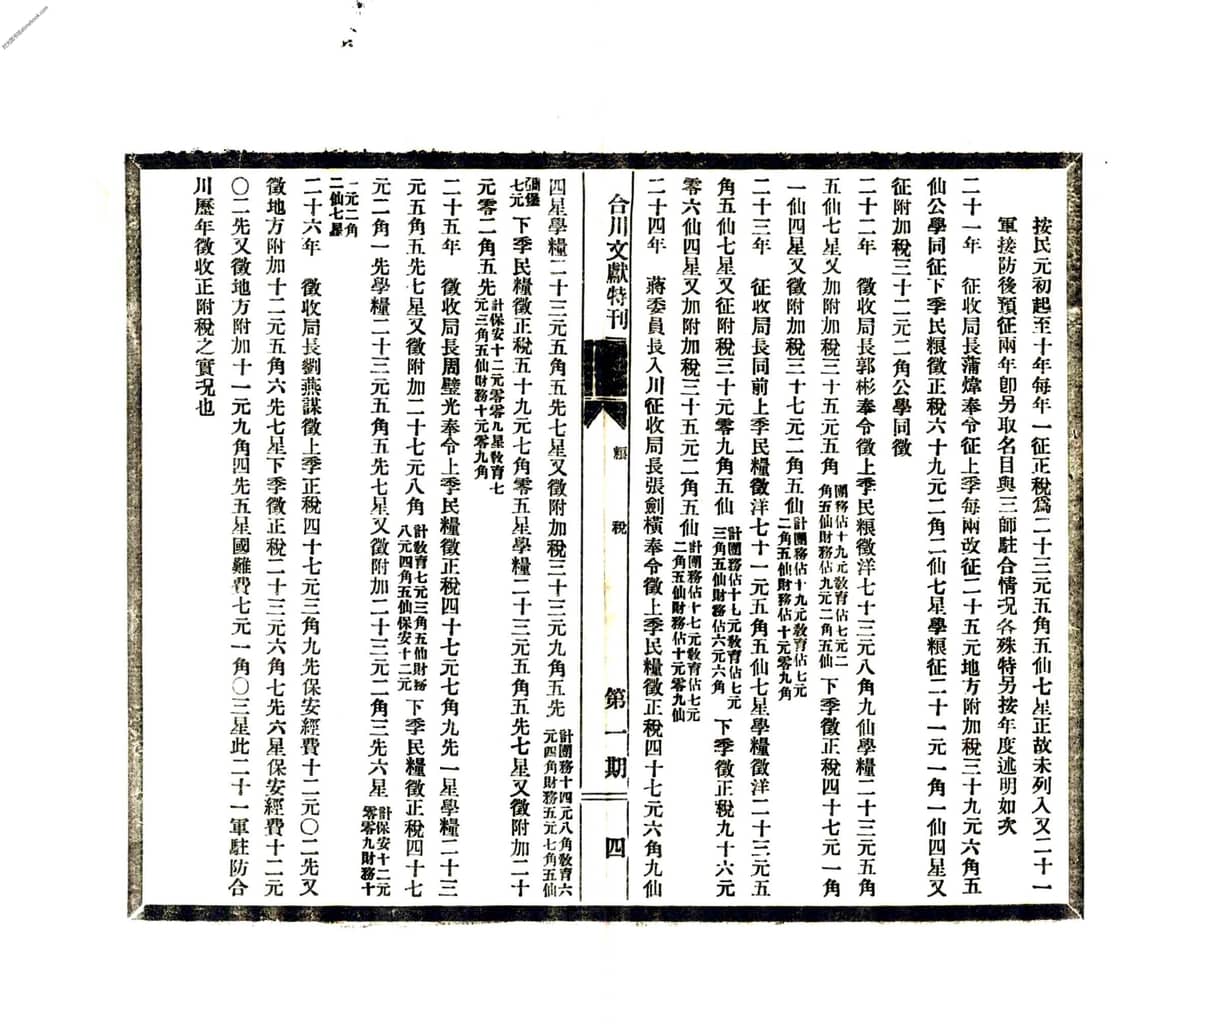 按民元初起至十年每年一征正稅爲二十三元五角五仙七星正故未列入又二十一
軍接防後預征兩年卽另取名目與三師駐合情況各殊特另按年度述明如次
二十一年　征收局長蒲煒奉令征上季每兩改征二十五元地方附加稅三十九元六角五
仙公學同征下季民粮徵正稅六十九元二角二仙七星學粮征二十一元一角一仙四星又
征附加稅三十二元二角公學同徵
二十二年　徵收局長郭彬奉令徵上季民粮徵洋七十三元八角九仙學糧二十三元五角
五仙七星又加附加稅三十五元五角團務佔十九元敎育佔七元二角五仙財務佔九元二角五仙　下季徵正稅四十七元一角
一仙四星又徵附加稅三十七元二角五仙計團務佔十九元敎育佔七元二角五仙財務佔十元零九角
二十三年　征收局長同前上季民糧徵洋七十一元五角五仙七星學糧徵洋二十三元五
角五仙七星又征附稅三十元零九角五仙計團務佔十七元敎育佔七元三角五仙財務佔六元六角　下季徵正稅九十六元
零六仙四星又加附加稅三十五元二角五仙計團務佔十七元敎育佔七元二角五仙財務佔十元零九仙
二十四年　蔣委員長入川征收局長張劍橫奉令徵上季民糧徵正稅四十七元六角九仙
合川文獻特刊　糧稅　第一期　四
四星學糧二十三元五角五先七星又徵附加稅三十三元九角五先計團務十四元八角敎育六元四角財務五元七角五仙
碉堡七元　下季民糧徵正稅五十九元七角零五星學糧二十三元五角五先七星又徵附加二十
元零二角五先計保安十二元零零九星敎育七元三角五仙財務十元零九角
二十五年　徵收局長周璧光奉令上季民糧徵正稅四十七元七角九先一星學糧二十三
元五角五先七星又徵附加二十七元八角計敎育七元三角五仙財務八元四角五仙保安十二元　下季民糧徵正稅四十七
元二角一先學糧二十三元五角五先七星又徵附加二十三元二角三先六星計保安十二元零零九財務十
一元二角二仙七星
二十六年　徵收局長劉燕謀徵上季正稅四十七元三角九先保安經費十二元〇二先又
徵地方附加十二元五角六先七星下季徵正稅二十三元六角七先六星保安經費十二元
〇二先又徵地方附加十一元九角四先五星國難費七元一角〇三星此二十一軍駐防合
川歷年徵收正附稅之實況也